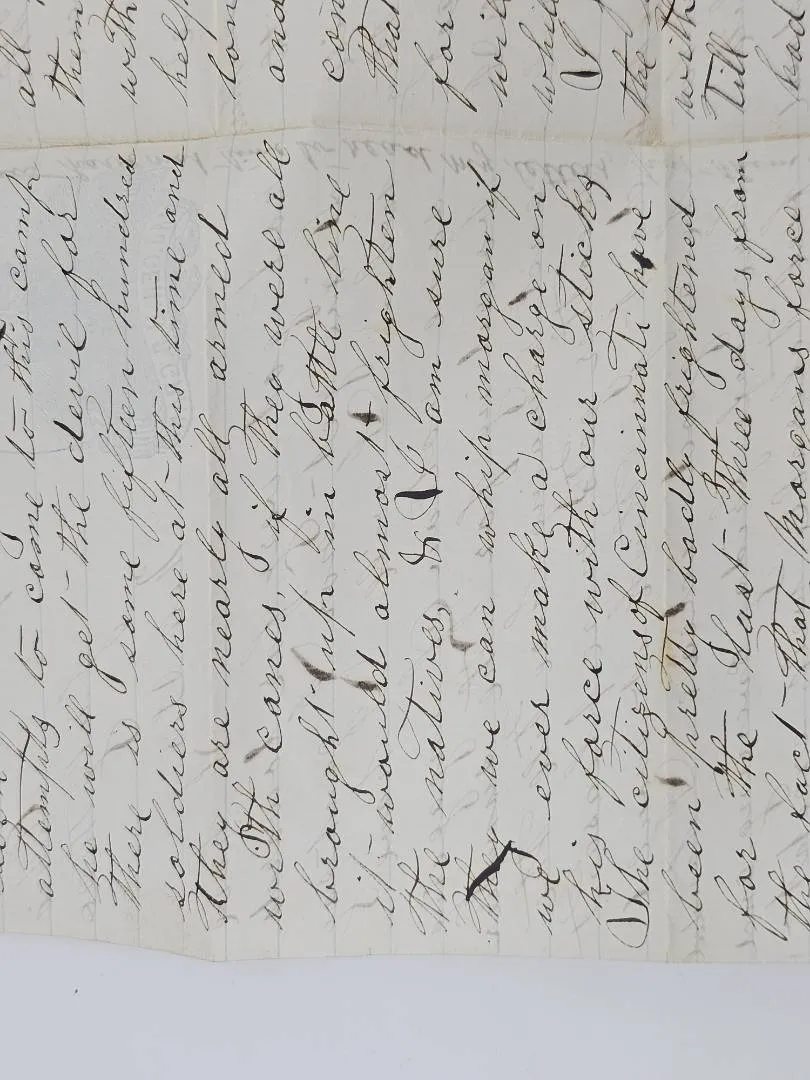 attempts to come to this camp
he will get the devil for
There is some fifteen hundred
soldiers here at this time and
they are nearly all armed
with canes, if they were all
brought up in battle line
it would almost frighten
the natives, & I am sure
they we can whip morgan if
we ever make a charge on
his force with our sticks
The citizens of Cincinnati have
been pretty badly frightened
for the last three days from
the fact that Morgans force
all
them
with
help
and
con
that
for
will
while
I
the
with
Till
had